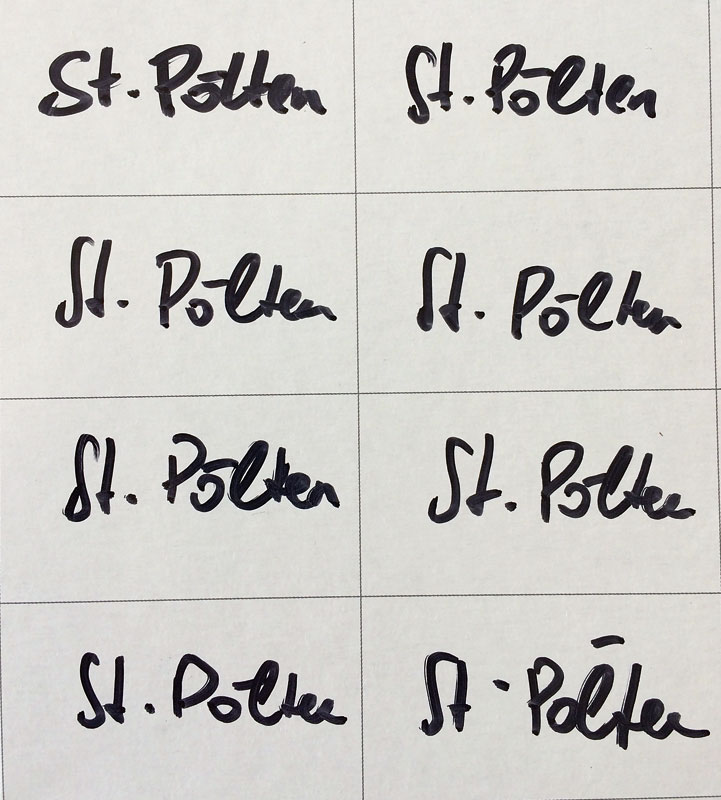 St. Pölten
St. Pölten
St. Pölten
St. Pölten
St. Pölten
St. Pölten
St. Pölten
St. Pölten